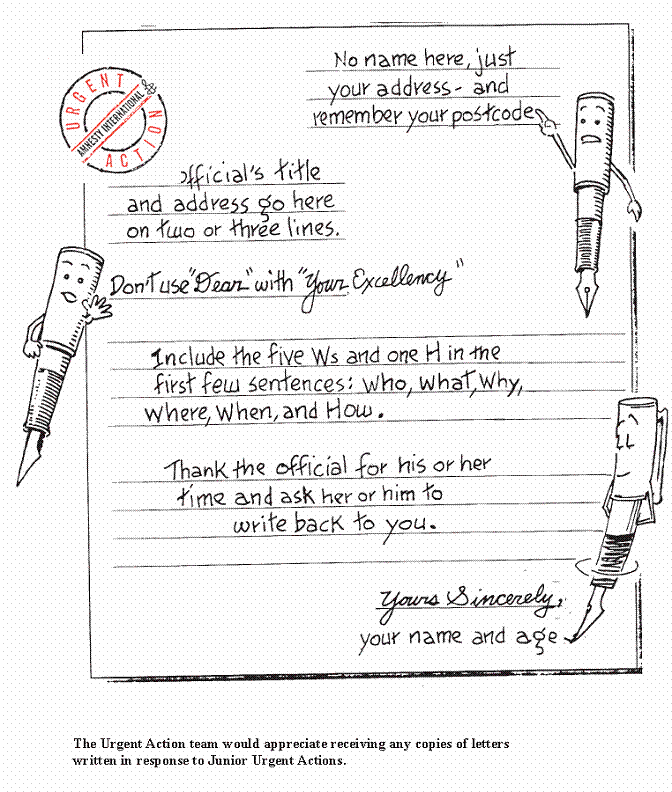 URGENT ACTION
AMNESTY INTERNATIONAL
No name here, just
your address - and
remember your postcode
official's title
and address go here
on two or three lines.
Don't use "Dear" with "Your Excellency"
Include the five Ws and one H in the
first few sentences: Who, What, Why,
Where, When, and How.
Thank the official for his or her
time and ask her or him to
write back to you.
Yours Sincerely,
your name and age
The Urgent Action team would appreciate receiving any copies of letters
written in response to Junior Urgent Actions.